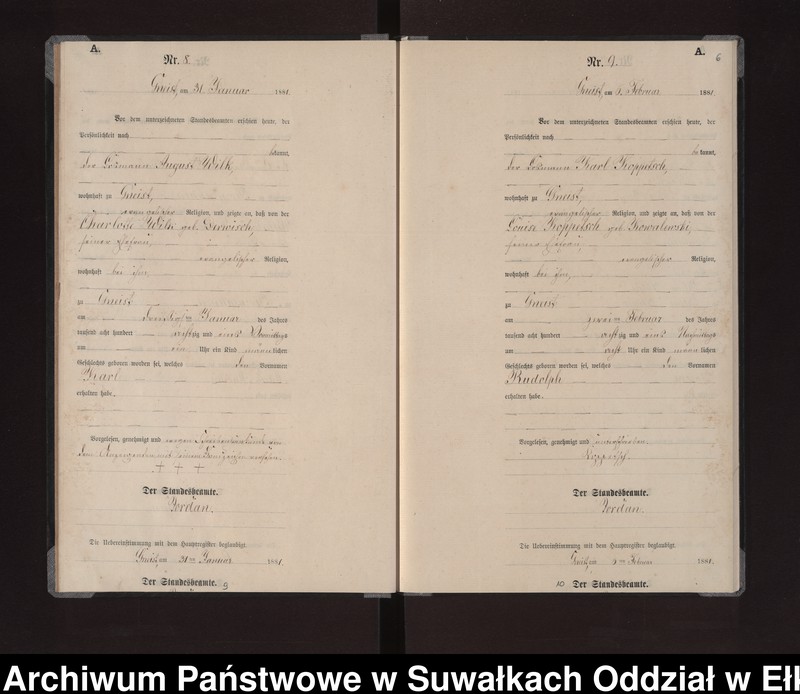 A.
Nr. 8.
am 31. Januar 1881.
Vor dem unterzeichneten Standesbeamten erschien heute, der
Persönlichkeit nach
bekannt,
der Losmann August Wilk,
wohnhaft zu
evangelischer Religion, und zeigte an, daß von der
Wilk geb.
seiner Ehefrau,
evangelischer Religion,
wohnhaft bei ihm,
zu
am Januar des Jahres
tausend acht hundert achtzig und eins
um ein Uhr ein Kind männlichen
Geschlechts geboren worden sei, welches den Vornamen
Karl
erhalten habe.
Vorgelesen, genehmigt und wegen
+ + +
Der Standesbeamte.
Jordan.
Die Uebereinstimmung mit dem Hauptregister beglaubigt.
am 31ten Januar 1881.
Der Standesbeamte.
9
A.
6
Nr. 9.
am Februar 1881.
Vor dem unterzeichneten Standesbeamten erschien heute, der
Persönlichkeit nach
bekannt,
der Losmann Karl Koppetsch,
wohnhaft zu
evangelischer Religion, und zeigte an, daß von der
Louise Koppetsch geb. Kowalewski,
seiner Ehefrau,
evangelischer Religion,
wohnhaft bei ihm,
zu
am zweiten Februar des Jahres
tausend acht hundert achtzig und eins
um acht Uhr ein Kind männlichen
Geschlechts geboren worden sei, welches den Vornamen
Rudolph
erhalten habe.
Vorgelesen, genehmigt und unterschrieben.
Der Standesbeamte.
Jordan.
Die Uebereinstimmung mit dem Hauptregister beglaubigt.
am Februar 1881.
10 Der Standesbeamte.
Archiwum Państwowe w Suwałkach Oddział w Ełk